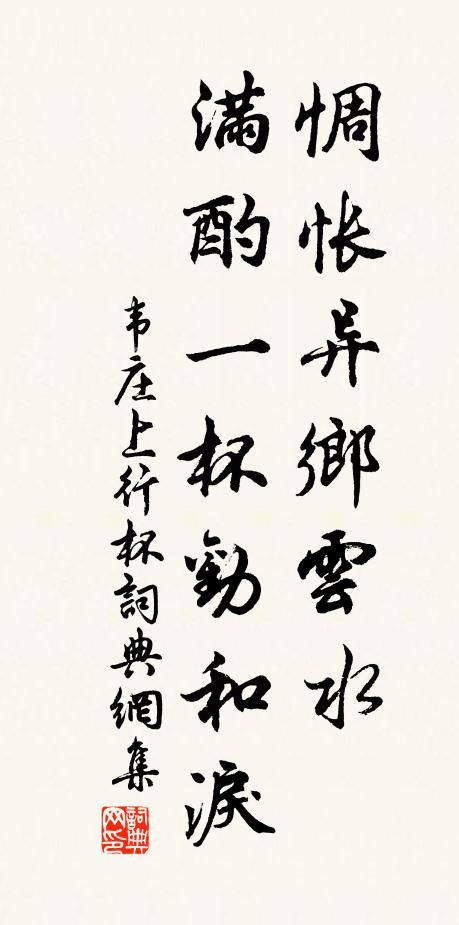 惆怅异鄉雲水
滿酌一杯勸和淚
韦庄上行杯詞典網集
詞典网印